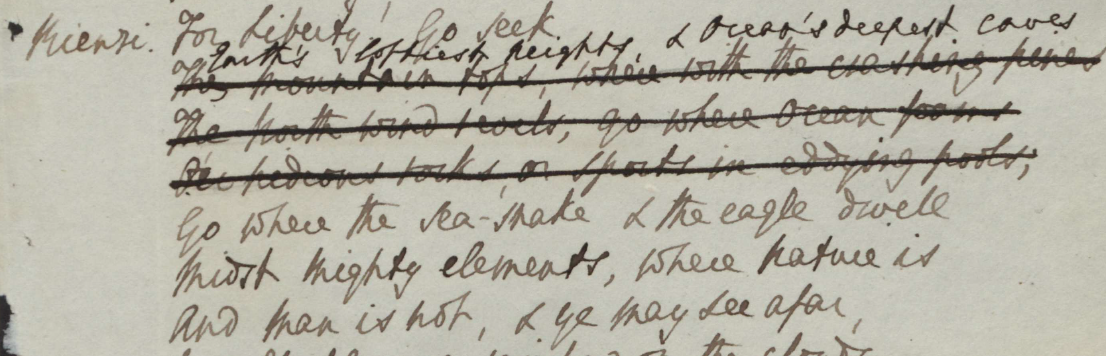 Rienzi. For Liberty! Go seek
Earth's loftiest heights, & Ocean's deepest caves
The mountain tops, where with the crashing pines
The North wind revels, go where Ocean foams
O'er hideous rocks, or sports in eddying pools;
Go where the sea-snake & the eagle dwell
Midst mighty elements, where nature is
And man is not, & ye may see afar,
the clouds